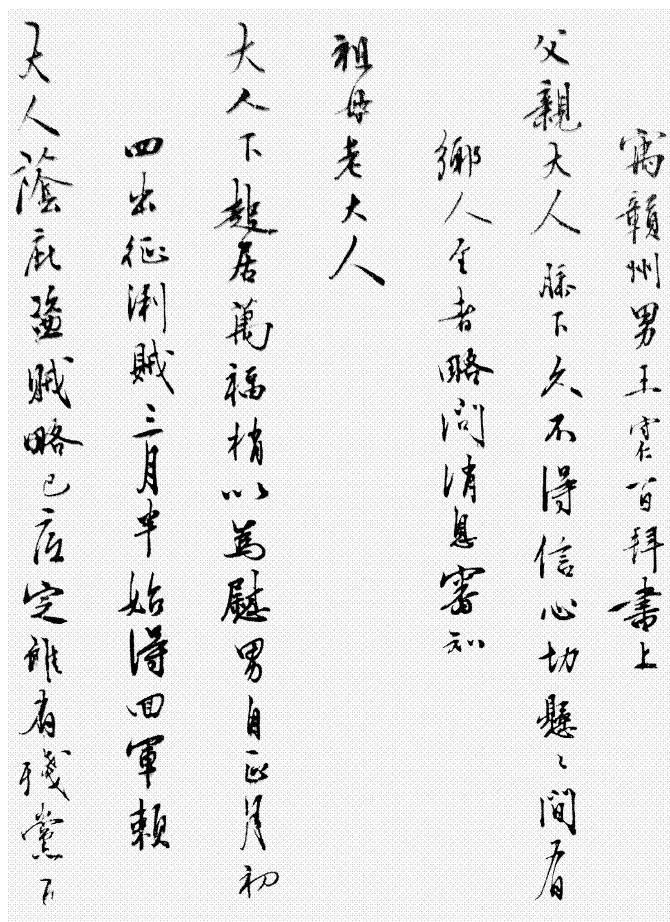 寓贛州男王守仁百拜書上
父親大人膝下久不得信心切懸懸間有
鄉人至者略問消息審知
祖母老大人
大人下起居萬福稍以為慰男自正月初
四出征浰賊三月半始得回軍賴
大人蔭庇盜賊略已底定雖有殘黨不